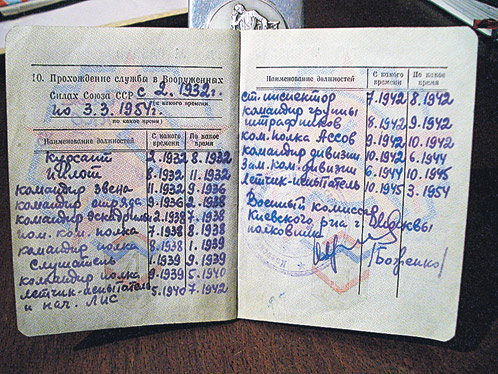 10. Прохождение службы в Вооруженных
Силах Союза ССР с 2. 1932 г.
(с какого времени)
по 3.3.1954 г.
(по какое время)
Наименование должностей С какого времени По какое время
Курсант 2.1932 8.1932
Пилот 8.1932 11.1932
командир звена 11.1932 9.1936
командир отряда 9.1936 2.1938
командир эскадрильи 2.1938 7.1938
пом. ком. полка 7.1938 8.1938
командир полка 8.1938 1.1939
Слушатель 1.1939 9.1939
командир полка 9.1939 5.1940
летчик-испытатель 5.1940 7.1942
и нач. ЛИС
Наименование должностей С какого времени По какое время
ст. инспектор 7.1942 8.1942
командир группы
штрафников 8.1942 9.1942
ком. полка Ассов 9.1942 10.1942
командир дивизии 10.1942 6.1944
Зам. ком. дивизии 6.1944 10.1945
летчик-испытатель 10.1945 3.1954
Военный комиссар
Киевского рна г. Москвы
полковник
/Боженко/